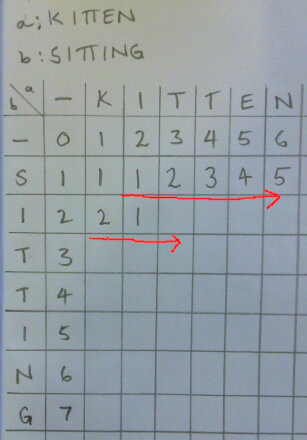 a: KITTEN
b: SITTING
b\a — K I T T E N
— 0 1 2 3 4 5 6
S 1 1 1 2 3 4 5
I 2 2 1
T 3
T 4
I 5
N 6
G 7